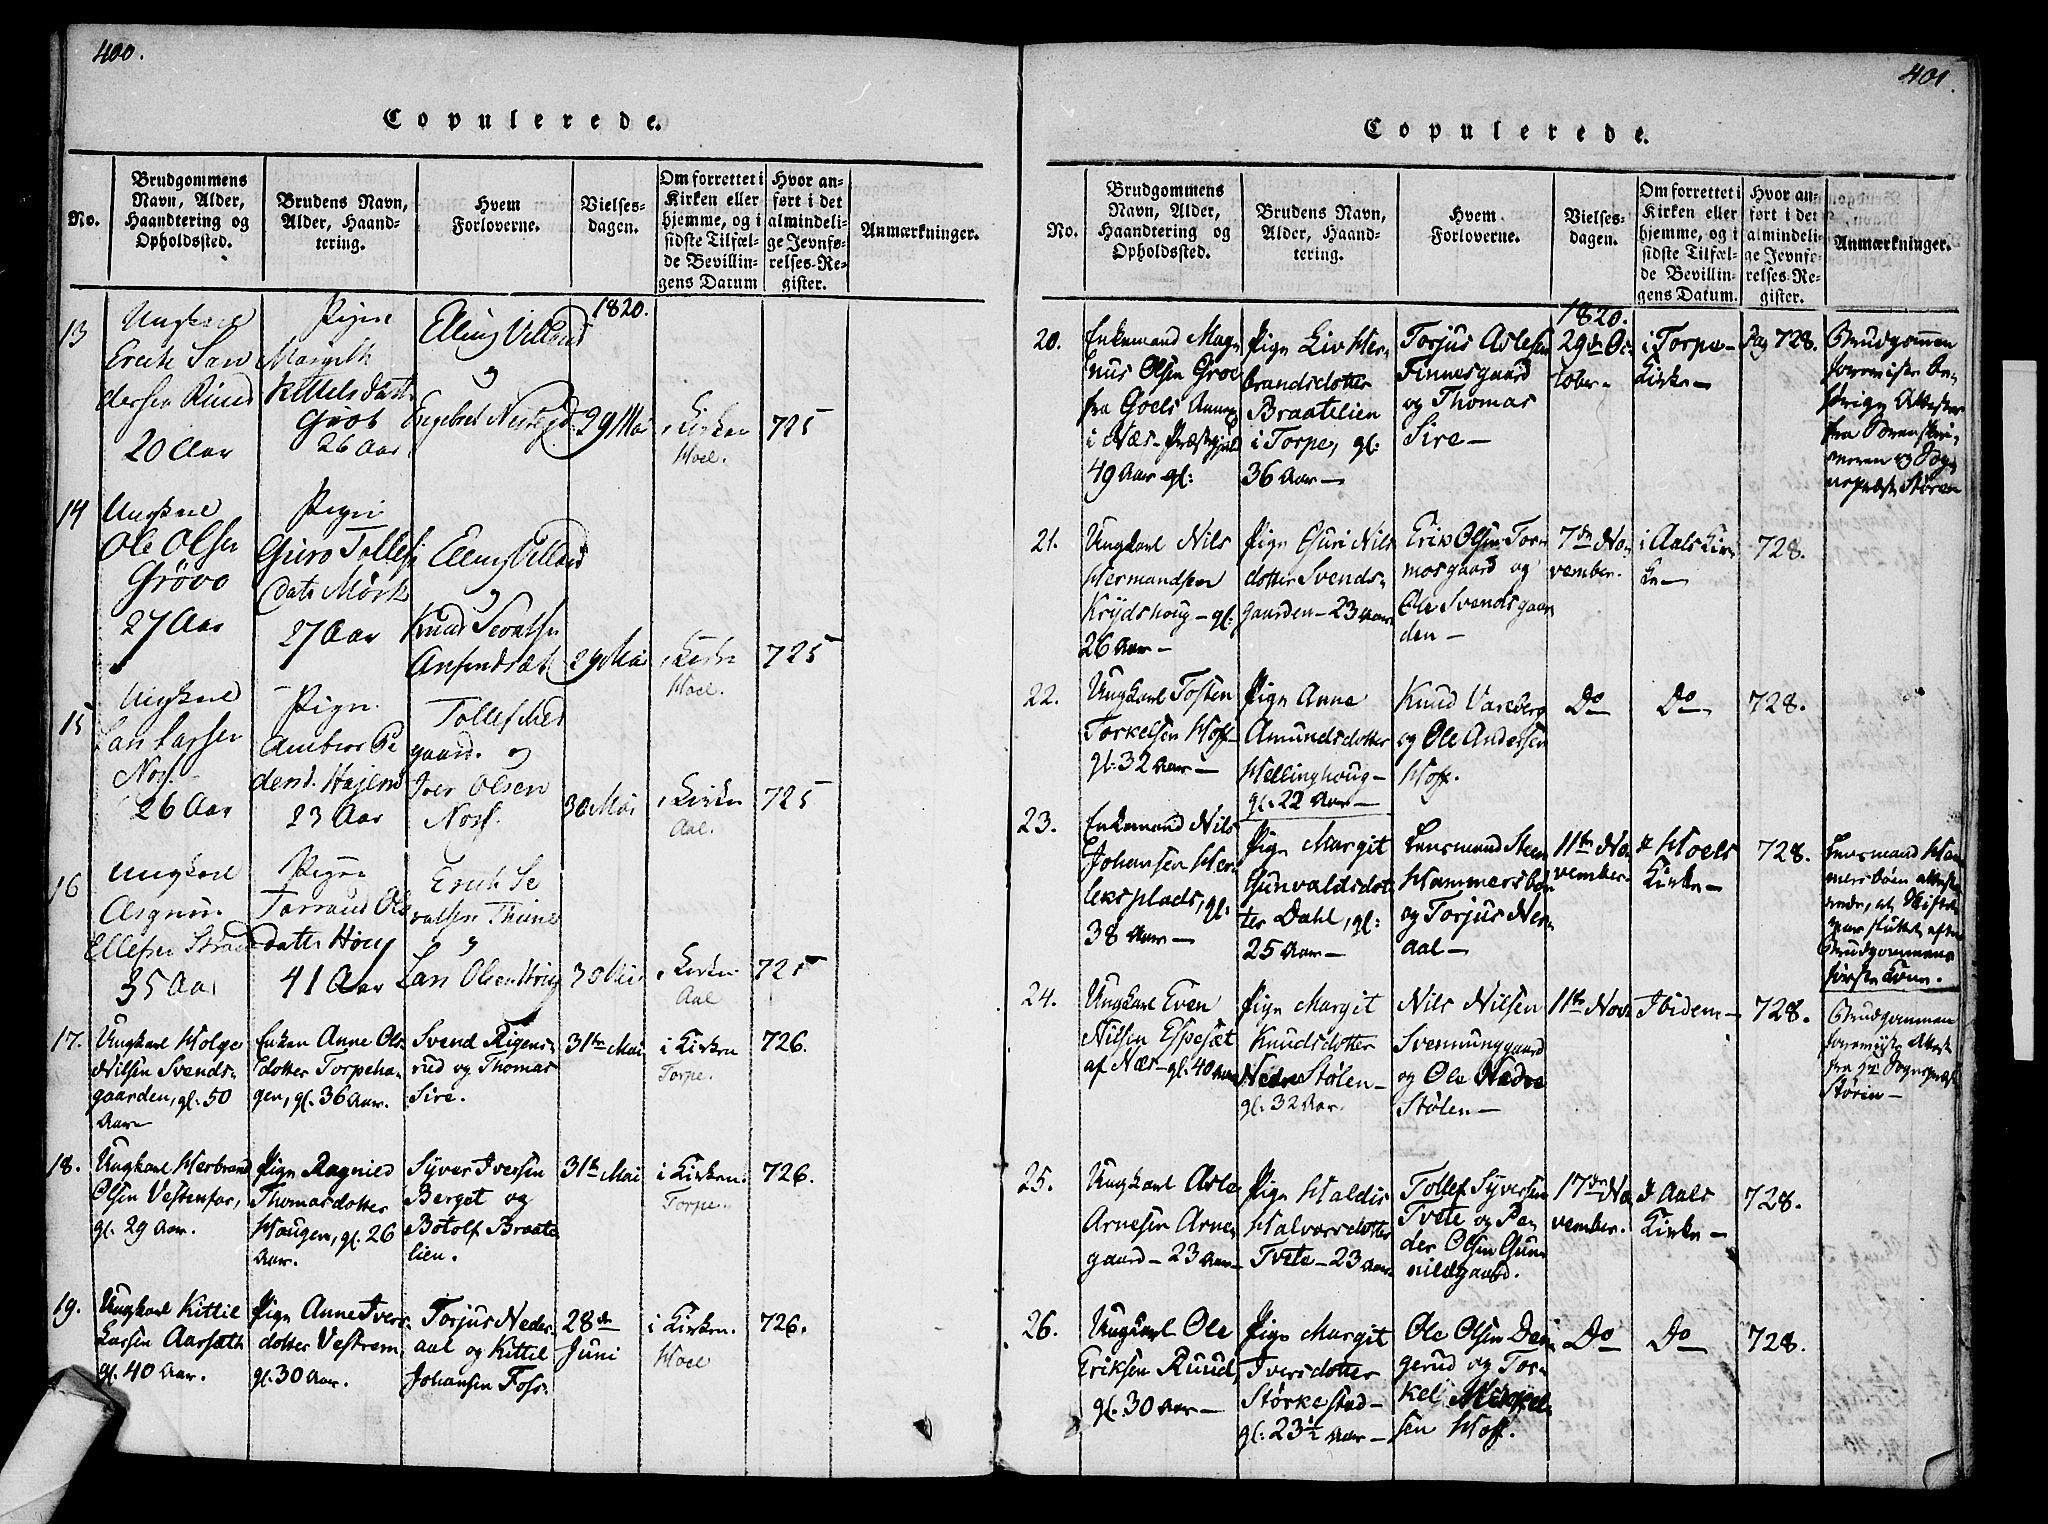 400.
Copulerede.
No.
Brudgommens
Navn, Alder,
Haandtering og
Opholdssted.
Brudens Navn,
Alder, Haand-
tering.
Hvem
Forloverne.
Vielses-
dagen.
Om forrettet i
Kirken eller
hjemme, og i
sidste Tilfæl-
de Bevillin-
gens Datum
Hvor an-
ført i det
almindeli-
ge Jevnfø-
relses-Re-
gister.
Anmærkninger.
1820.
13
Ungkarl
Erich San
dersen Ruud
20 Aar
Pigen
Margith
Kittels datt
Grøt
26 Aar
Elling Villand
og
Engebret Nestegd.
29 Mai
i Kirken
Hoel.
725
14
Ungkarl
Ole Olsen
Grøvo
27 Aar
Pigen
Guro Tollefs
datr Mørk
27 Aar
Elling Villand
og
Knud Sevatsen
29 Mai
i Kirken
Hoel.
725
15
Ungkarl
Lars Larsen
Noss.
26 Aar
Pigen
Ambior Pe
dersd. Hajem
23 Aar
Tollef Med
gaard. og
Iver Olsen
Noss.
30 Mai
i Kirken
Aal.
725
16
Ungkarl
Asgrim
Ellefsen
35 Aar
Pigen
Ols
datter Houg
41 Aar
Erich Se
vatsen Thune
og
Lars Olsen Houg
30 Mai
i Kirken
Aal
725
17.
Ungkarl Holge
Nilsen Svends-
gaarden, gl. 50
Aar
Enken Anne Ols
dotter Torpeha-
gen, gl. 36 Aar.
Svend Rigens-
rud og Thomas
Sire.
31te Mai
i Kirken
Torpe.
726.
18.
Ungkarl Herbrand
Olsen Vestenfor,
gl. 29 Aar.
Pigen Ragnild
Thomasdotter
Haugen, gl. 26
Aar.
Syver Iversen
Berget og
Botolf Braate-
lien.
31te Mai
i Kirken.
Torpe.
726.
19.
Ungkarl Kittil
Larsen Aarsæth
gl. 40 Aar.
Pigen Anne Ivers-
dotter Vestrem
gl. 30 Aar.
Torjus Neder-
aal og Kittil
Johansen Foss-
28de
Juni
i Kirken.
Hoel
726.
401.
Copulerede.
No.
Brudgommens
Navn, Alder,
Haandtering og
Opholdssted.
Brudens Navn,
Alder, Haand-
tering.
Hvem
Forloverne.
Vielses-
dagen.
Om forrettet i
Kirken eller
hjemme, og i
sidste Tilfæl-
de Bevillin-
gens Datum.
Hvor an-
ført i det
almindeli-
ge Jevnfø-
relses-Re-
gister.
Anmærkninger.
1820.
20.
Enkemand Mag-
nus Olsen Groe
fra Goels Annex
i Næs-Præstegjeld
49 Aar gl:
Pigen Liv Her-
brandsdotter
Braatelien
i Torpe, gl:
36 Aar —
Torjus Aslesen
Finnesgaard
og Thomas
Sire —
29de Oc-
tober —
i Torpe-
Kirke —
Pag 728.
Brudgommen
foreviste be-
hørige Attester
fra
og Sogn
nepræst Støren
21.
Ungkarl Nils
Hermandsen
Krydshoug — gl:
26 Aar —
Pigen Guri Nils
dotter Svends-
gaarden — 23 Aar
Erik Olsen Tor-
mosgaard og
Ole Svendsgaar
den —
7de No-
vember.
i Aals Kir-
ke —
728.
22.
Ungkarl Tosten
Torkelsen Hoff
gl: 32 Aar —
Pigen Anne
Amundsdotter
Hellinghoug —
gl: 22 Aar —
Knud Vareberg
og Ole Andersen
Hoff.
Do
Do
728.
23.
Enkemand Nils
Johansen Her-
leksplads, gl:
38 Aar —
Pigen Margit
Gunvaldsdot-
ter Dahl, gl:
25 Aar —
Lensmand Steen
Hammersbøn
og Torjus Ner-
aal —
11te No-
vember.
I Hoels
Kirke —
728.
Lensmand Ham
mersbøen atteste
rede, at Skiftet
var sluttet efter
Brudgommens
første Kone.
24.
Ungkarl Even
Nilsen Espesæt
af Næs — gl. 40 Aar
Pigen Margit
Knudsdotter
Nedre Stølen —
gl. 32 Aar.
Nils Nilsen
Svennunggaard
og Ole Nedre
Stølen —
11te Nov.
Ibidem —
728.
Brudgommen
foreviste Attest
fra Hr Sognepræst
Støren —
25.
Ungkarl Asle
Arnesen Arne-
gaard — 23 Aar —
Pigen Haldis
Halvorsdotter
Tvete — 23 Aar
Tollef Syversen
Tvete og Pe-
der Olsen Gun-
nildgaard.
17de No-
vember.
I Aals
Kirke —
728.
26.
Ungkarl Ole
Eriksen Ruud,
gl. 30 Aar —
Pigen Margit
Iversdotter
Størkestad —
gl: 23½ Aar —
Ole Olsen Den-
gerud og Tor-
kel Mikkel-
sen Hoff.
Do
Do
728.